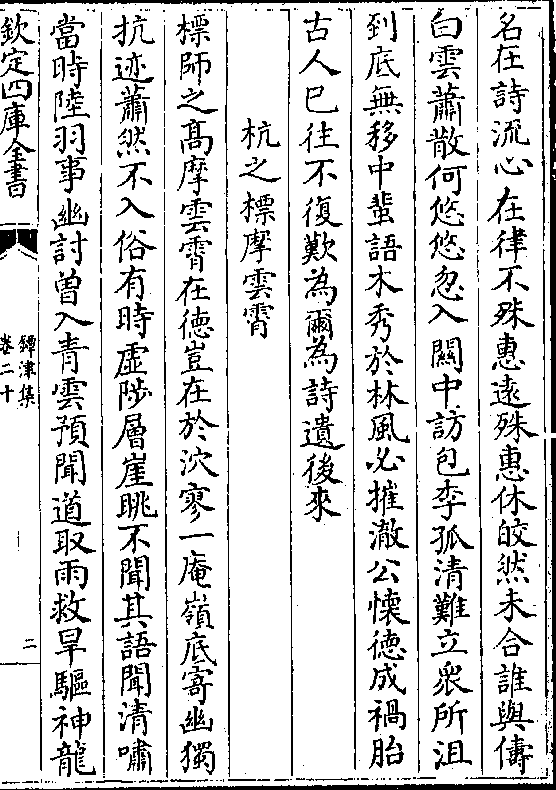 名在詩流心在律不殊惠遠殊惠休皎然未合誰與儔
白雲蕭散何悠悠忽入關中訪包李孤清難立衆所沮
到底無移中輩語木秀於林風必摧澈公懐德成禍胎
古人已往不復歎為爾為詩遺後來
杭之標摩雲霄
標師之髙摩雲霄在德豈在於泬寥一庵嶺底寄幽獨
抗迹蕭然不入俗有時虛陟層崖眺不聞其語聞清嘯
當時陸羽事幽討曾入青雲預聞道取雨救旱驅神龍
欽定四庫全書
鐔津集
卷二十
二